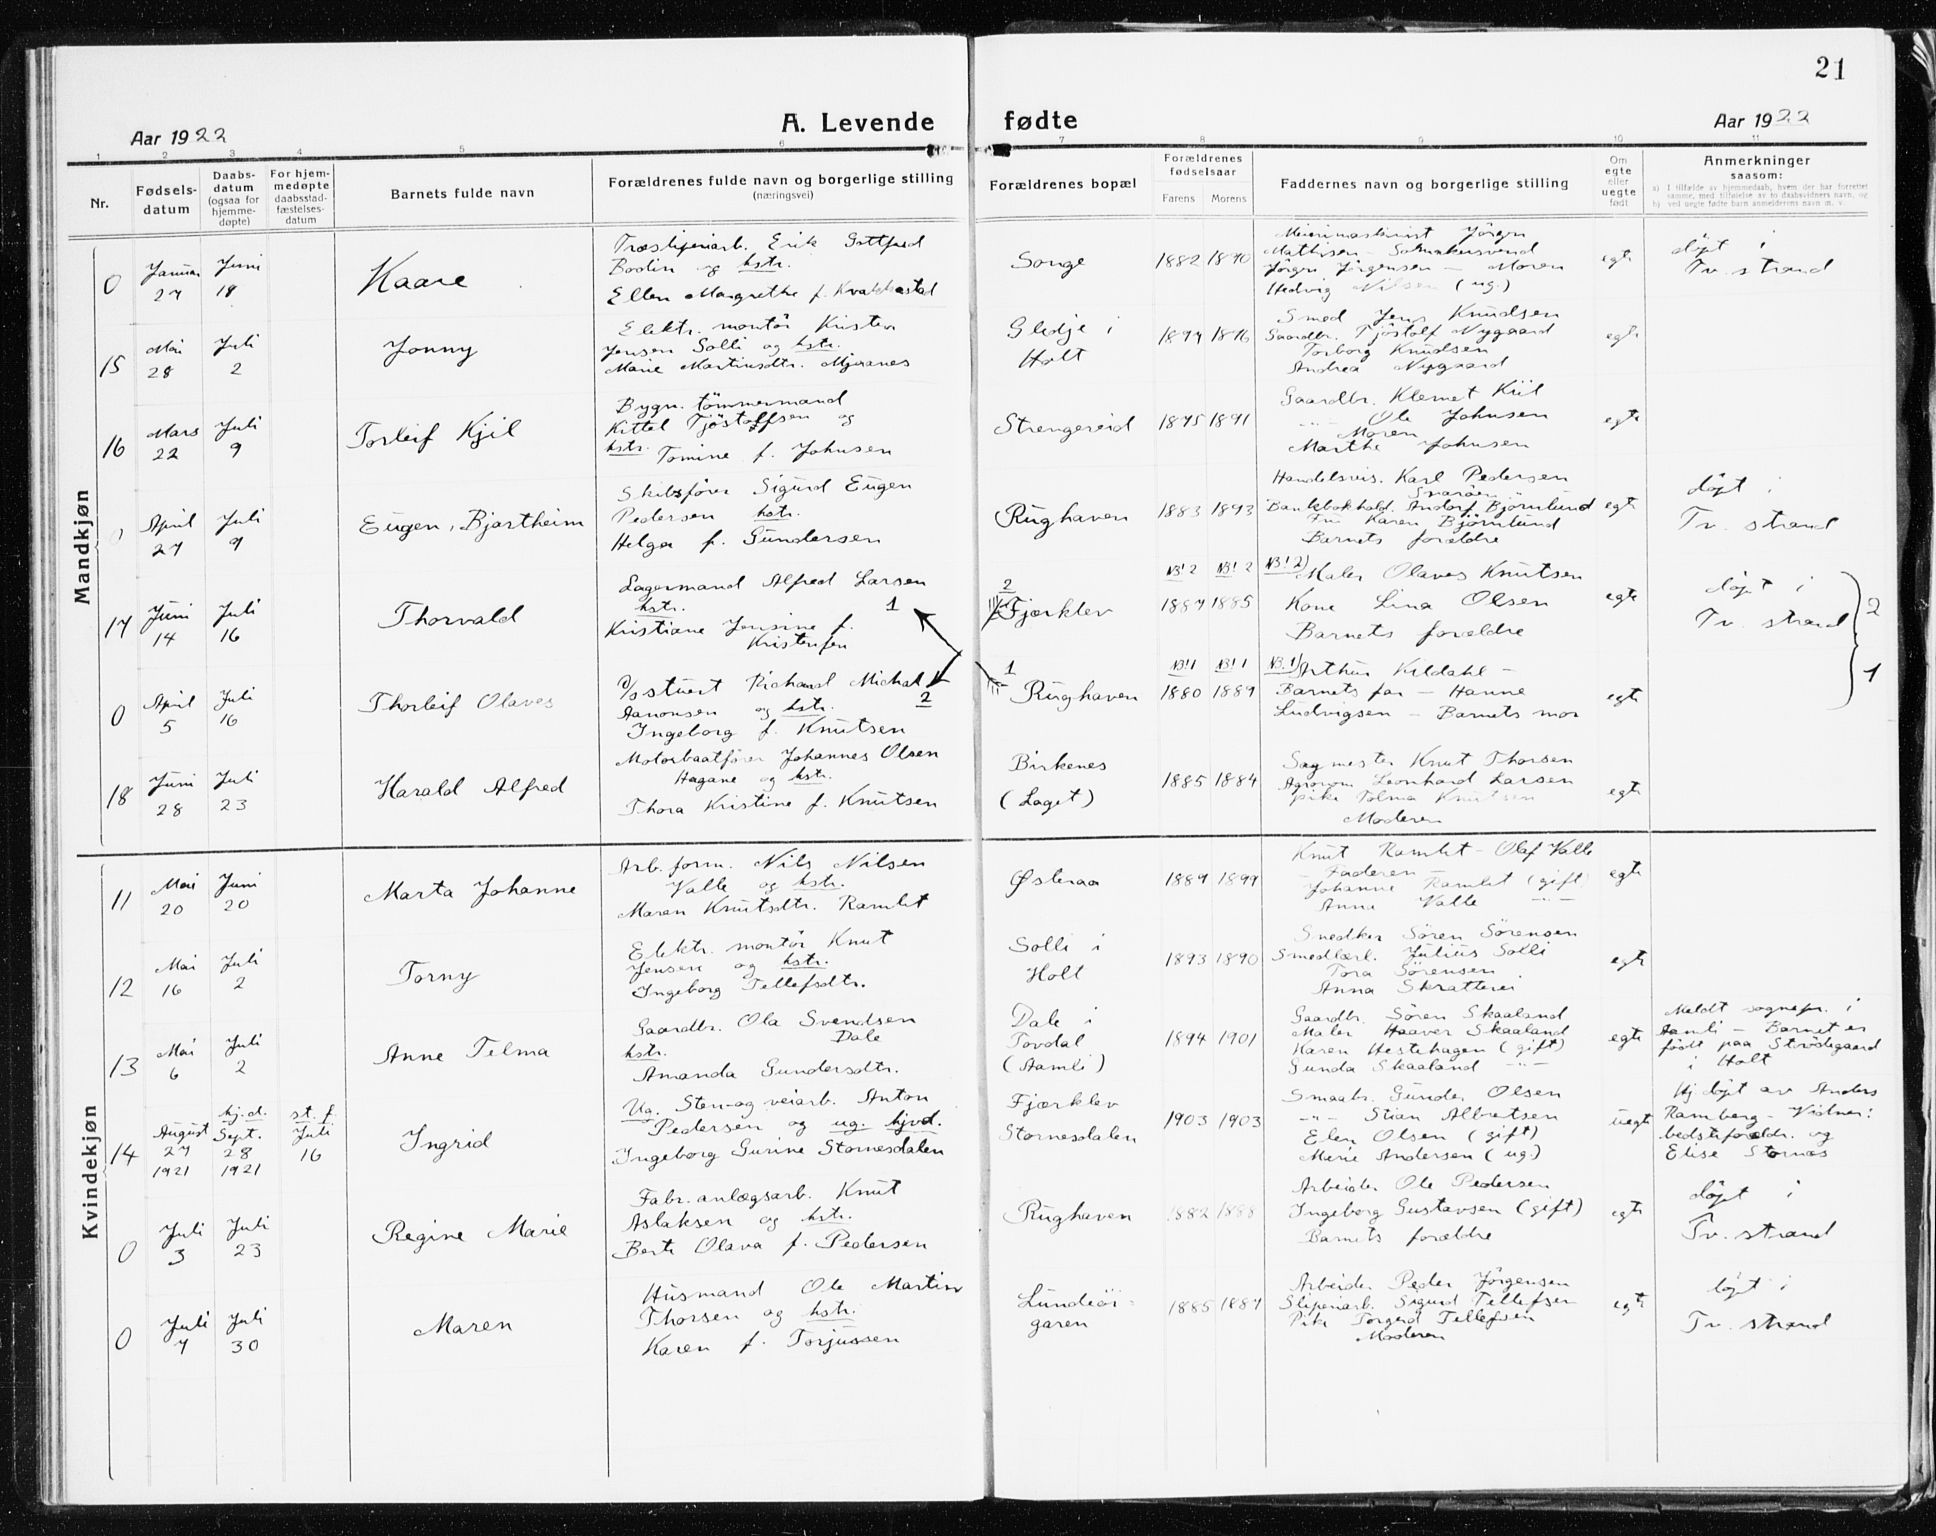 21
A. Levende fødte
Aar 1922
Aar 1922
1 2 3 4 5 6 7 8 9 10 11
Nr.
Fødsels-
datum
Daabs-
datum
(ogsaa for
hjemme-
døpte)
For hjem-
medøpte
daabsstad-
fæstelses-
datum
Barnets fulde navn
Forældrenes fulde navn og borgerlige stilling
(næringsvei)
Forældrenes bopæl
Forældrenes
fødselsaar
Farens Morens
Faddernes navn og borgerlige stilling
Om
egte
eller
uegte
født
Anmerkninger
saasom:
a) I tilfælde av hjemmedaab, hvem der har forrettet
samme, med tilføielse av to daabsvidners navn, og
b) ved uegte fødte barn anmelderens navn m. v.
Mandkjøn
0
Januar
27
Juni
18
Kaare
Træsliperiarb. Erik Gottfred
Bodin og hstr.
Ellen Margrethe f. Kvakkestad
Songe
1882 1890
Jørgn
Mathisen
Jørgn Jørgensen — Moren
Hedvig Nilsen (ug.)
egte
døpt i
Tv. strand
15
Mai
28
Juli
2
Jonny
Elektr. montör Kristen
Jensen Solli og hstr.
Marie Martinsdtr. Mjaanes
Gledje i
Holt
1897 1896
Smed Jens Knudsen
Gaardbr. Tjöstolf Nygaard
Torborg Knudsen
Andrea Nygaard
egte
16
Mars
22
Juli
9
Torleif Kjil
Bygn. tömmermand
Kittel Tjöstolfsen og
hstr. Tomine f. Johnsen
Strengereid
1895 1891
Gaardbr. Klemet Kiil
-"- Ole Johnsen
Moren
Marthe Johnsen
egte
0
April
27
Juli
9
Eugen, Bjartheim
Skibsfører Sigurd Eugen
Pedersen hstr.
Helga f. Gundersen
Rughaven
1883 1893
Handelsreis. Karl Pedersen
Svaröen
Bankbokhold. Andorf Björnlund
Fru Karen Björnlund
Barnets forældre
egte
døpt i
Tv. strand
17
Juni
14
Juli
16
Thorvald
Lagermand Alfred Larsen
hstr. 1
Kristiane Jensine f.
Kristensen
2
Fjærklev
NB! 2 NB! 2
1887 1885
NB! 2) Maler Olaves Knutsen
Kone Lina Olsen
Barnets forældre
egte
døpt i
Tv. strand
2
0
April
5
Juli
16
Thorleif Olaves
D/S stuert Richard Michal
Aanonsen og hstr. 2
Ingeborg f. Knutsen
1
Rughaven
NB! 1 NB! 1
1880 1889
NB. 1) Arthur Kildahl —
Barnets far — Hanne
Ludvigsen — Barnets mor
egte
1
18
Juni
28
Juli
23
Harald Alfred
Motorbaatfører Johannes Olsen
Hagane og hstr.
Thora Kristine f. Knutsen
Birkenes
(Laget)
1885 1884
Sagmester Knut Thorsen
Agronom Leonhard Larsen
pike Tolma Knutsen
Moderen
egte
Kvindekjøn
11
Mai
20
Juni
20
Marta Johanne
Arb. form. Nils Nilsen
Valle og hstr.
Maren Knutsdtr. Ramlet
Østeraa
1889 1899
Knut Ramlet — Olaf Valle
— Faderen —
Johanne Ramlet (gift)
Anne Valle -"-
egte
12
Mai
16
Juli
2
Torny
Elektr. montör Knut
Jensen og hstr.
Ingeborg Tellefsdtr.
Solli i
Holt
1893 1890
Snedker Sören Sörensen
Smedlærl. Julius Solli
Tora Sörensen
Anna Skratterei
egte
13
Mai
6
Juli
2
Anne Telma
Gaardbr. Ola Svendsen
hstr. Dale
Amanda Gundersdtr.
Dale i
Tovdal
(Aamli)
1894 1901
Gaardbr. Sören Skaaland
Maler Haaver Skaaland
Karen Hestehagen (gift)
Gunda Skaaland -"-
egte
Meldt sognepr. i
Aamli — Barnet er
født paa Strödegaard
i Holt
14
August
27
1921
hj.d.
Sept.
28
1921
st. f.
Juli
16
Ingrid
Ug. Sten-og veiarb. Anton
Pedersen og ug. hjvd.
Ingeborg Gurine Stornesdalen
Fjærklev
Stornesdalen
1903 1903
Smaabr. Gunder Olsen
-"- Stian Albretsen
Elen Olsen (gift)
Marie Andersen (ug.)
uegte
Hj. døpt av Anders
Ramberg — Vidner:
bedsteforeldr. og
Elise Stornæs
0
Juli
3
Juli
23
Regine Marie
Fabr. anlægsarb. Knut
Aslaksen og hstr.
Berte Olava f. Pedersen
Rughaven
1882 1888
Arbeider Ole Pedersen
Ingeborg Gustavsen (gift)
Barnets forældre
egte
døpt i
Tv. strand
0
Juli
7
Juli
30
Maren
Husmand Ole Martin
Thorsen og hstr.
Karen f. Torjussen
garen
1885 1887
Arbeider Peder Jørgensen
Sliperiarb. Sigurd Tellefsen
Pike Torgerd Tellefsen
Moderen
egte
døpt i
Tv. strand